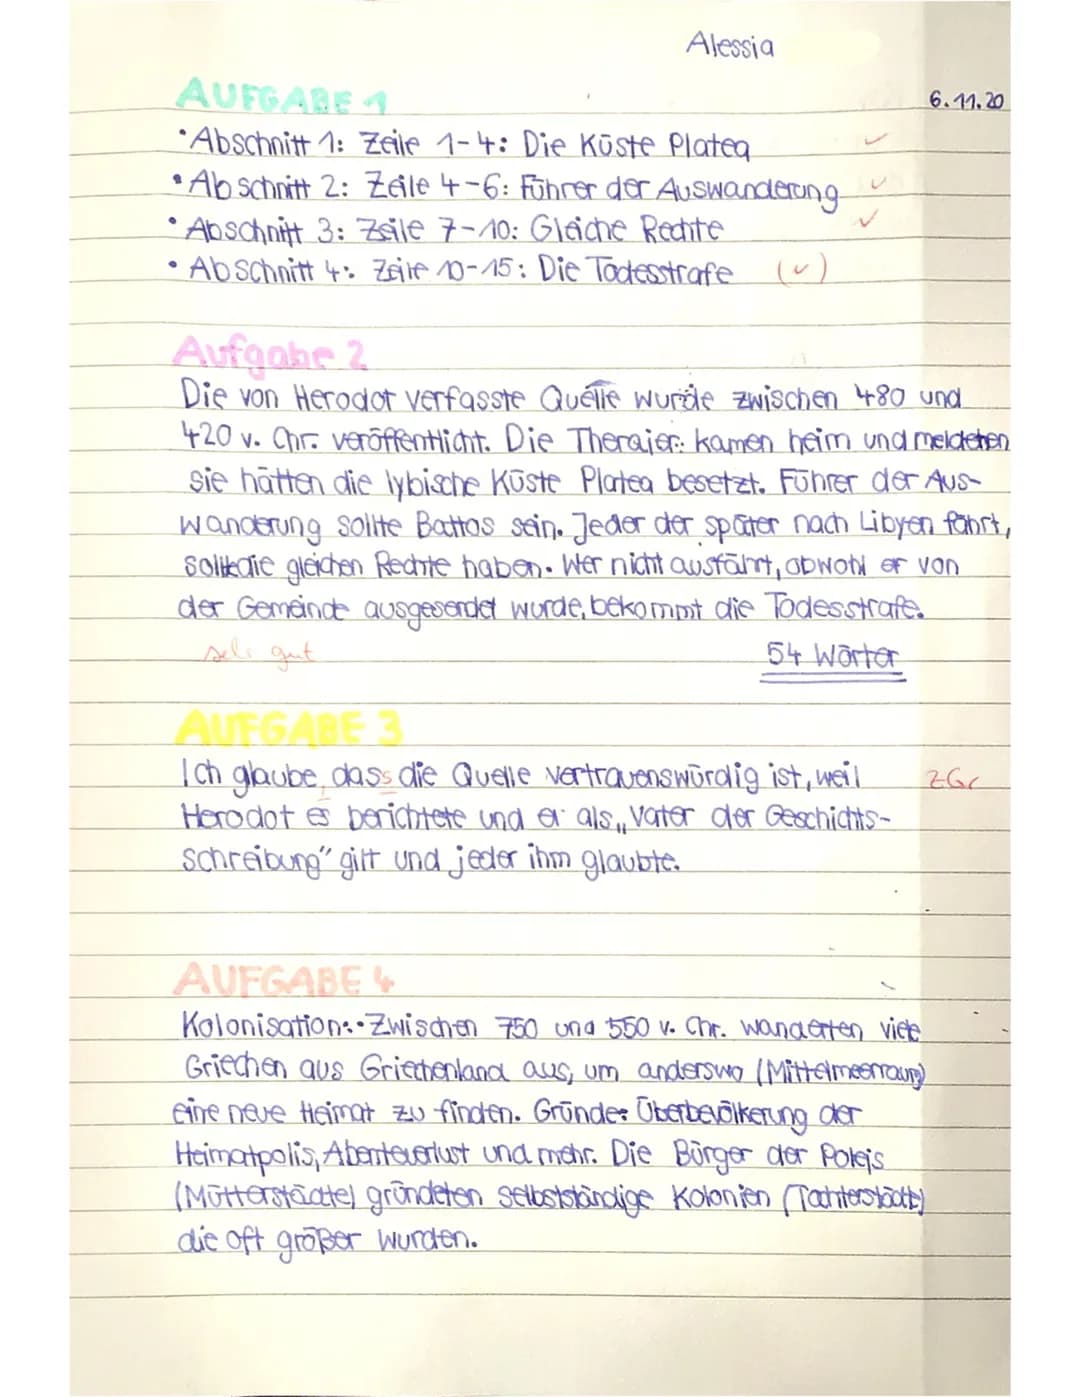 Alessia
AUFGABE 1
6.11.20
• Abschnitt 1: Zeile 1-4: Die Küste Platea ✓
• Abschnitt 2: Zeile 4-6: Führer der Auswanderung ✓
• Abschnitt 3: Zeile 7-10: Gleiche Rechte ✓
• Abschnitt 4: Zeile 10-15: Die Todesstrafe (✓)
Aufgabe 2
Die von Herodot verfasste Quelle wurde zwischen 480 und
420 v. Chr. veröffentlicht. Die Theraier: kamen heim und meldeten
sie hätten die lybische Küste Platea besetzt. Führer der Aus-
wanderung sollte Battos sein. Jeder der später nach Libyen fährt,
sollte die gleichen Rechte haben. Wer nicht ausfährt, obwohl er von
der Gemeinde ausgesendet wurde, bekommt die Todesstrafe.
sehr gut
54 Wörter
AUFGABE 3
Ich glaube, dass die Quelle vertrauenswürdig ist, weil
ZGr
Herodot es berichtete und er als „Vater der Geschichts-
schreibung" gilt und jeder ihm glaubte.
AUFGABE 4
Kolonisation: • Zwischen 750 und 550 v. Chr. wanderten viele
Griechen aus Griechenland aus, um anderswo (Mittelmeerraum)
eine neue Heimat zu finden. Gründe: Überbevölkerung der
Heimatpolis, Abenteuerlust und mehr. Die Bürger der Poleis
(Mütterstädte) gründeten selbstständige Kolonien (Tochterstädte)
die oft größer wurden.